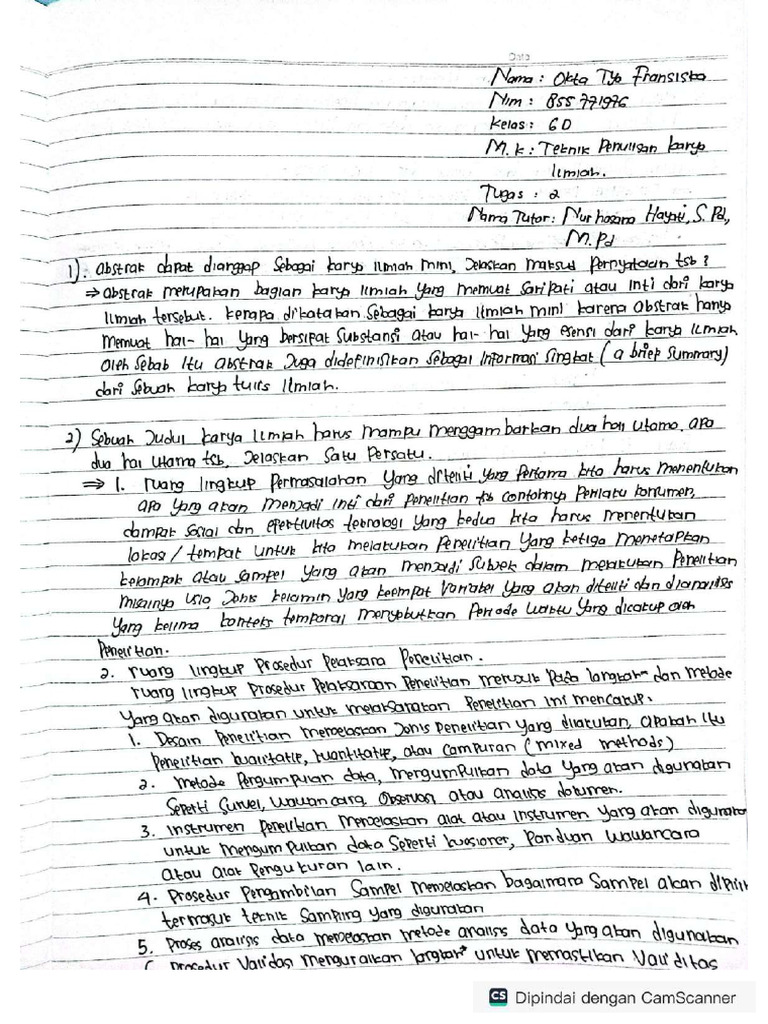 Date
Nama : Okta Tyo Fransiska
Nim : 855 771976
Kelas : 6D
M.k : Teknik Penulisan karya
Ilmiah.
Tugas : 2
Nama Tutor : Nurhasana Hayati, S.Pd,
M.Pd
1). Abstrak dapat dianggap Sebagai karya Ilmiah mini, Jelaskan maksud Pernyataan tsb?
⇒ Abstrak merupakan bagian karya Ilmiah yang memuat Saripati atau Inti dari karya
Ilmiah tersebut. kerapa dikatakan Sebagai karya Ilmiah mini karena Abstrak hanya
Memuat hai-hai yang bersipat Substansi atau hai-hai yang esensi dari karya Ilmiah
Oleh Sebab Itu abstrak Juga didefinisikan Sebagai Informasi Singkat (a briep Summary)
dari Sebuah karya tulis Ilmiah.
2) Sebuah Judul karya Ilmiah harus mampu menggambarkan dua hai Utama, apa
dua hai Utama tsb, Jelaskan Satu Persatu.
⇒ 1. ruang lingkup Permasalahan yang diteliti yang Pertama kita harus menentukan
apa yang akan menjadi inti dari Penelitian tsb contohnya Perilaku konsumen,
dampak Sosial dan epertivitas teknologi yang kedua kita harus menentukan
lokasi / tempat untuk kita melakukan Penelitian yang ketiga Menetapkan
kelompok atau Sampel yang akan menjadi Subjek dalam melakukan Penelitian
misalnya Usia Jenis kelamin yang keempat Variabel yang akan diteliti dan dianalisis
yang kelima konteks temporal menyebutkan Periode waktu yang dicakup oleh
Penelitian.
2. ruang lingkup Prosedur Pelaksana Penelitian.
ruang lingkup Prosedur Pelaksanaan Penelitian merujuk Pada langkah" dan metode
yang akan digunakan untuk melaksanakan Penelitian Ini mencakup.
1. Desain Penelitian menjelaskan Jenis Penelitian yang dilakukan, apakah Itu
Penelitian kualitatip, kuantitatip, atau Campuran (mixed methods)
2. metode Pengumpulan data, mengumpulkan data yang akan digunakan
Seperti Survei, wawancara, Observasi atau analisis dokumen.
3. Instrumen Penelitian Menjelaskan alat atau Instrumen yang akan digunakan
untuk mengumpulkan data Seperti kuesioner, Panduan Wawancara
Atau Alat Pengukuran lain.
4. Prosedur Pengambilan Sampel menjelaskan bagaimana Sampel akan dipilih
termasuk teknik Sampling yang digunakan
5. Proses analisis data menjelaskan metode analisis data yang akan digunakan
Prosedur Validasi menguraikan langkah" untuk memastikan Validitas
CS Dipindai dengan CamScanner